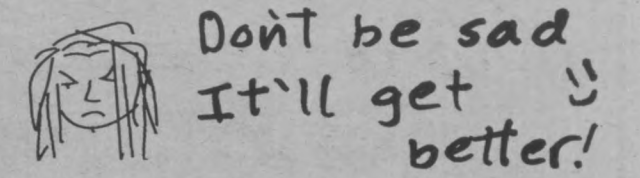 Don't be sad
It'll get
better!